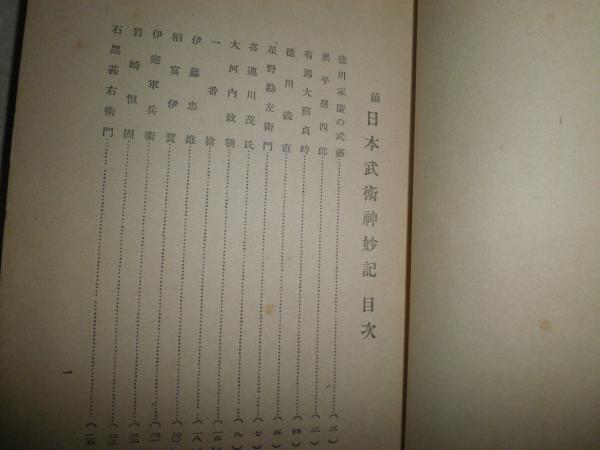 續日本武術神妙記 目次
德川家康の武藝……(三)
奥平孫四郎……(三)
有馬大膳貞時……(四)
德川義直……(五)
星野勘左衛門……(七)
喜連川茂氏……(九)
大河内政朝……(一五)
一番槍……(一八)
伊藤忠雄
稻富伊賀
伊庭軍兵衛
岩崎恒固
石黒甚右衛門
一